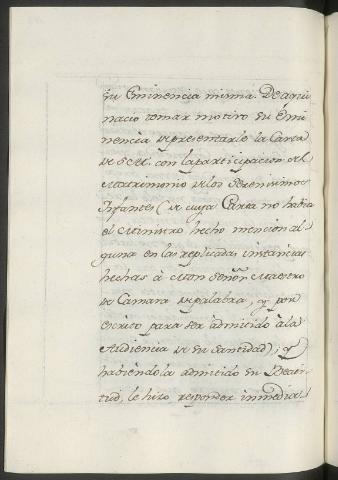 su Eminencia misma. De aqui
nacio tomar motivo su Emi
nencia representarlo la Carta
de S.M. con la participacion del
Matrimonio de los Serenissimos
Infantes (de cuya Carta no havia
el Ministro hecho mencion al
guna en las replicadas instancias
hechas à Monseñor Maestro
de Camara de palabra, y por
escrito para ser admitido à la
Audiencia de su Santidad); y
habiendola admitido su Beati
tud, le hizo responder inmedia